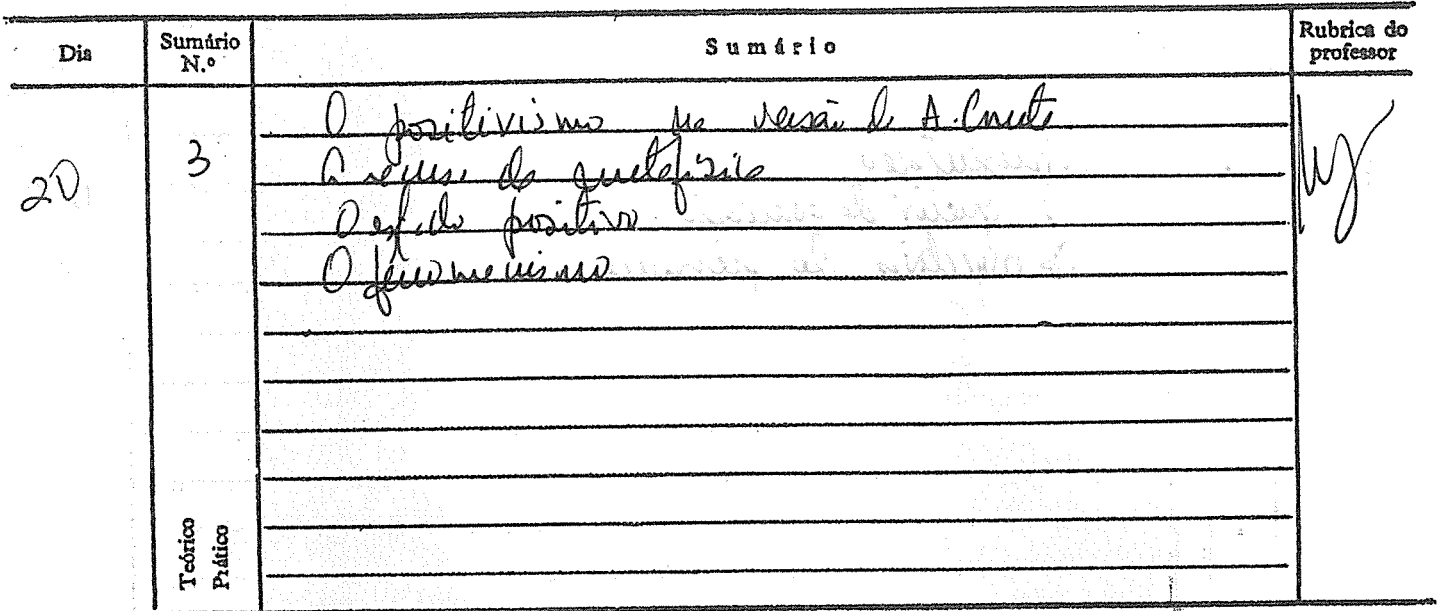 Dia Sumário N.º Sumário Rubrica do professor
20 3 O positivismo na versão de A. Comte
A recusa da metafísica
O estado positivo
O fenomenismo
Teórico
Prático